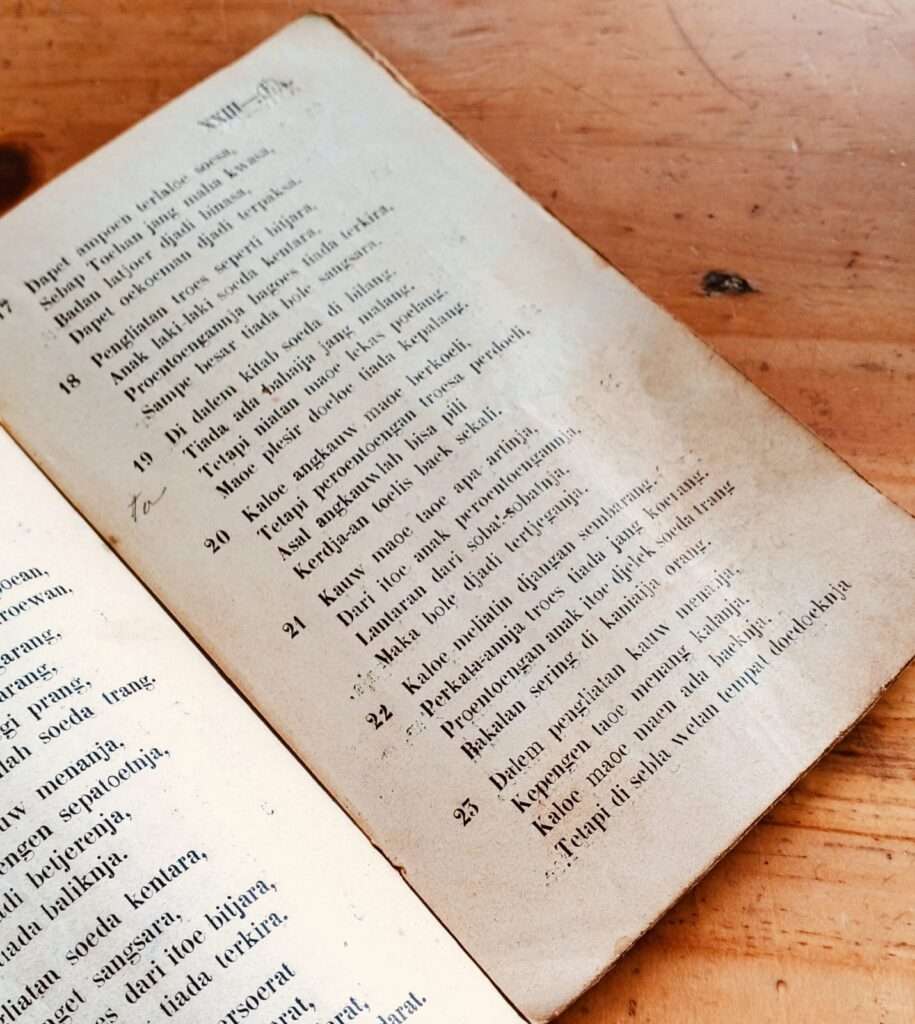 roewan,
arang,
arang,
gi prang,
lah soeda trang.
menanja,
engen sepatoetnja,
adi betjerenja,
baliknja.
gliatan soeda kentara,
nget sangsara,
dari itoe bitjara,
tiada terkira.
ersoerat
arat,
darat.
XXIII
17 Dapet ampoen terlaloe soesa,
Sebap Toehan jang maha kwasa,
Badan latjoer djadi binasa,
Dapet oekoeman djadi terpaksa.
18 Pengliatan troes seperti bitjara,
Anak laki-laki soeda kentara,
Proentoengannja bagoes tiada terkira,
Sampe besar tiada bole sangsara.
19 Di dalem kitab soeda di bilang.
Tiada ada bahaija jang malang.
Tetapi niatan maoe lekas poelang.
Maoe plesir doeloe tiada kepalang.
20 Kaloe angkauw maoe berkoeli,
Tetapi peroentoengan troesa perdoeli,
Asal angkauwlah bisa pili
Kerdja-an toelis baek sekali.
21 Kauw maoe taoe apa artinja,
Dari itoe anak peroentoengannja,
Lantaran dari sobat-sobatnja,
Maka bole djadi tertjeganja.
22 Kaloe meliatin djangan sembarang.
Perkata-annja troes tiada jang koerang.
Proentoengan anak itoe djelek soeda trang
Bakalan sering di kaniaija orang.
23 Dalem pengliatan kauw menanja,
Kepengen taoe menang kalanja.
Kaloe maoe maen ada baeknja.
Tetapi di sebla wetan tempat doedoeknja